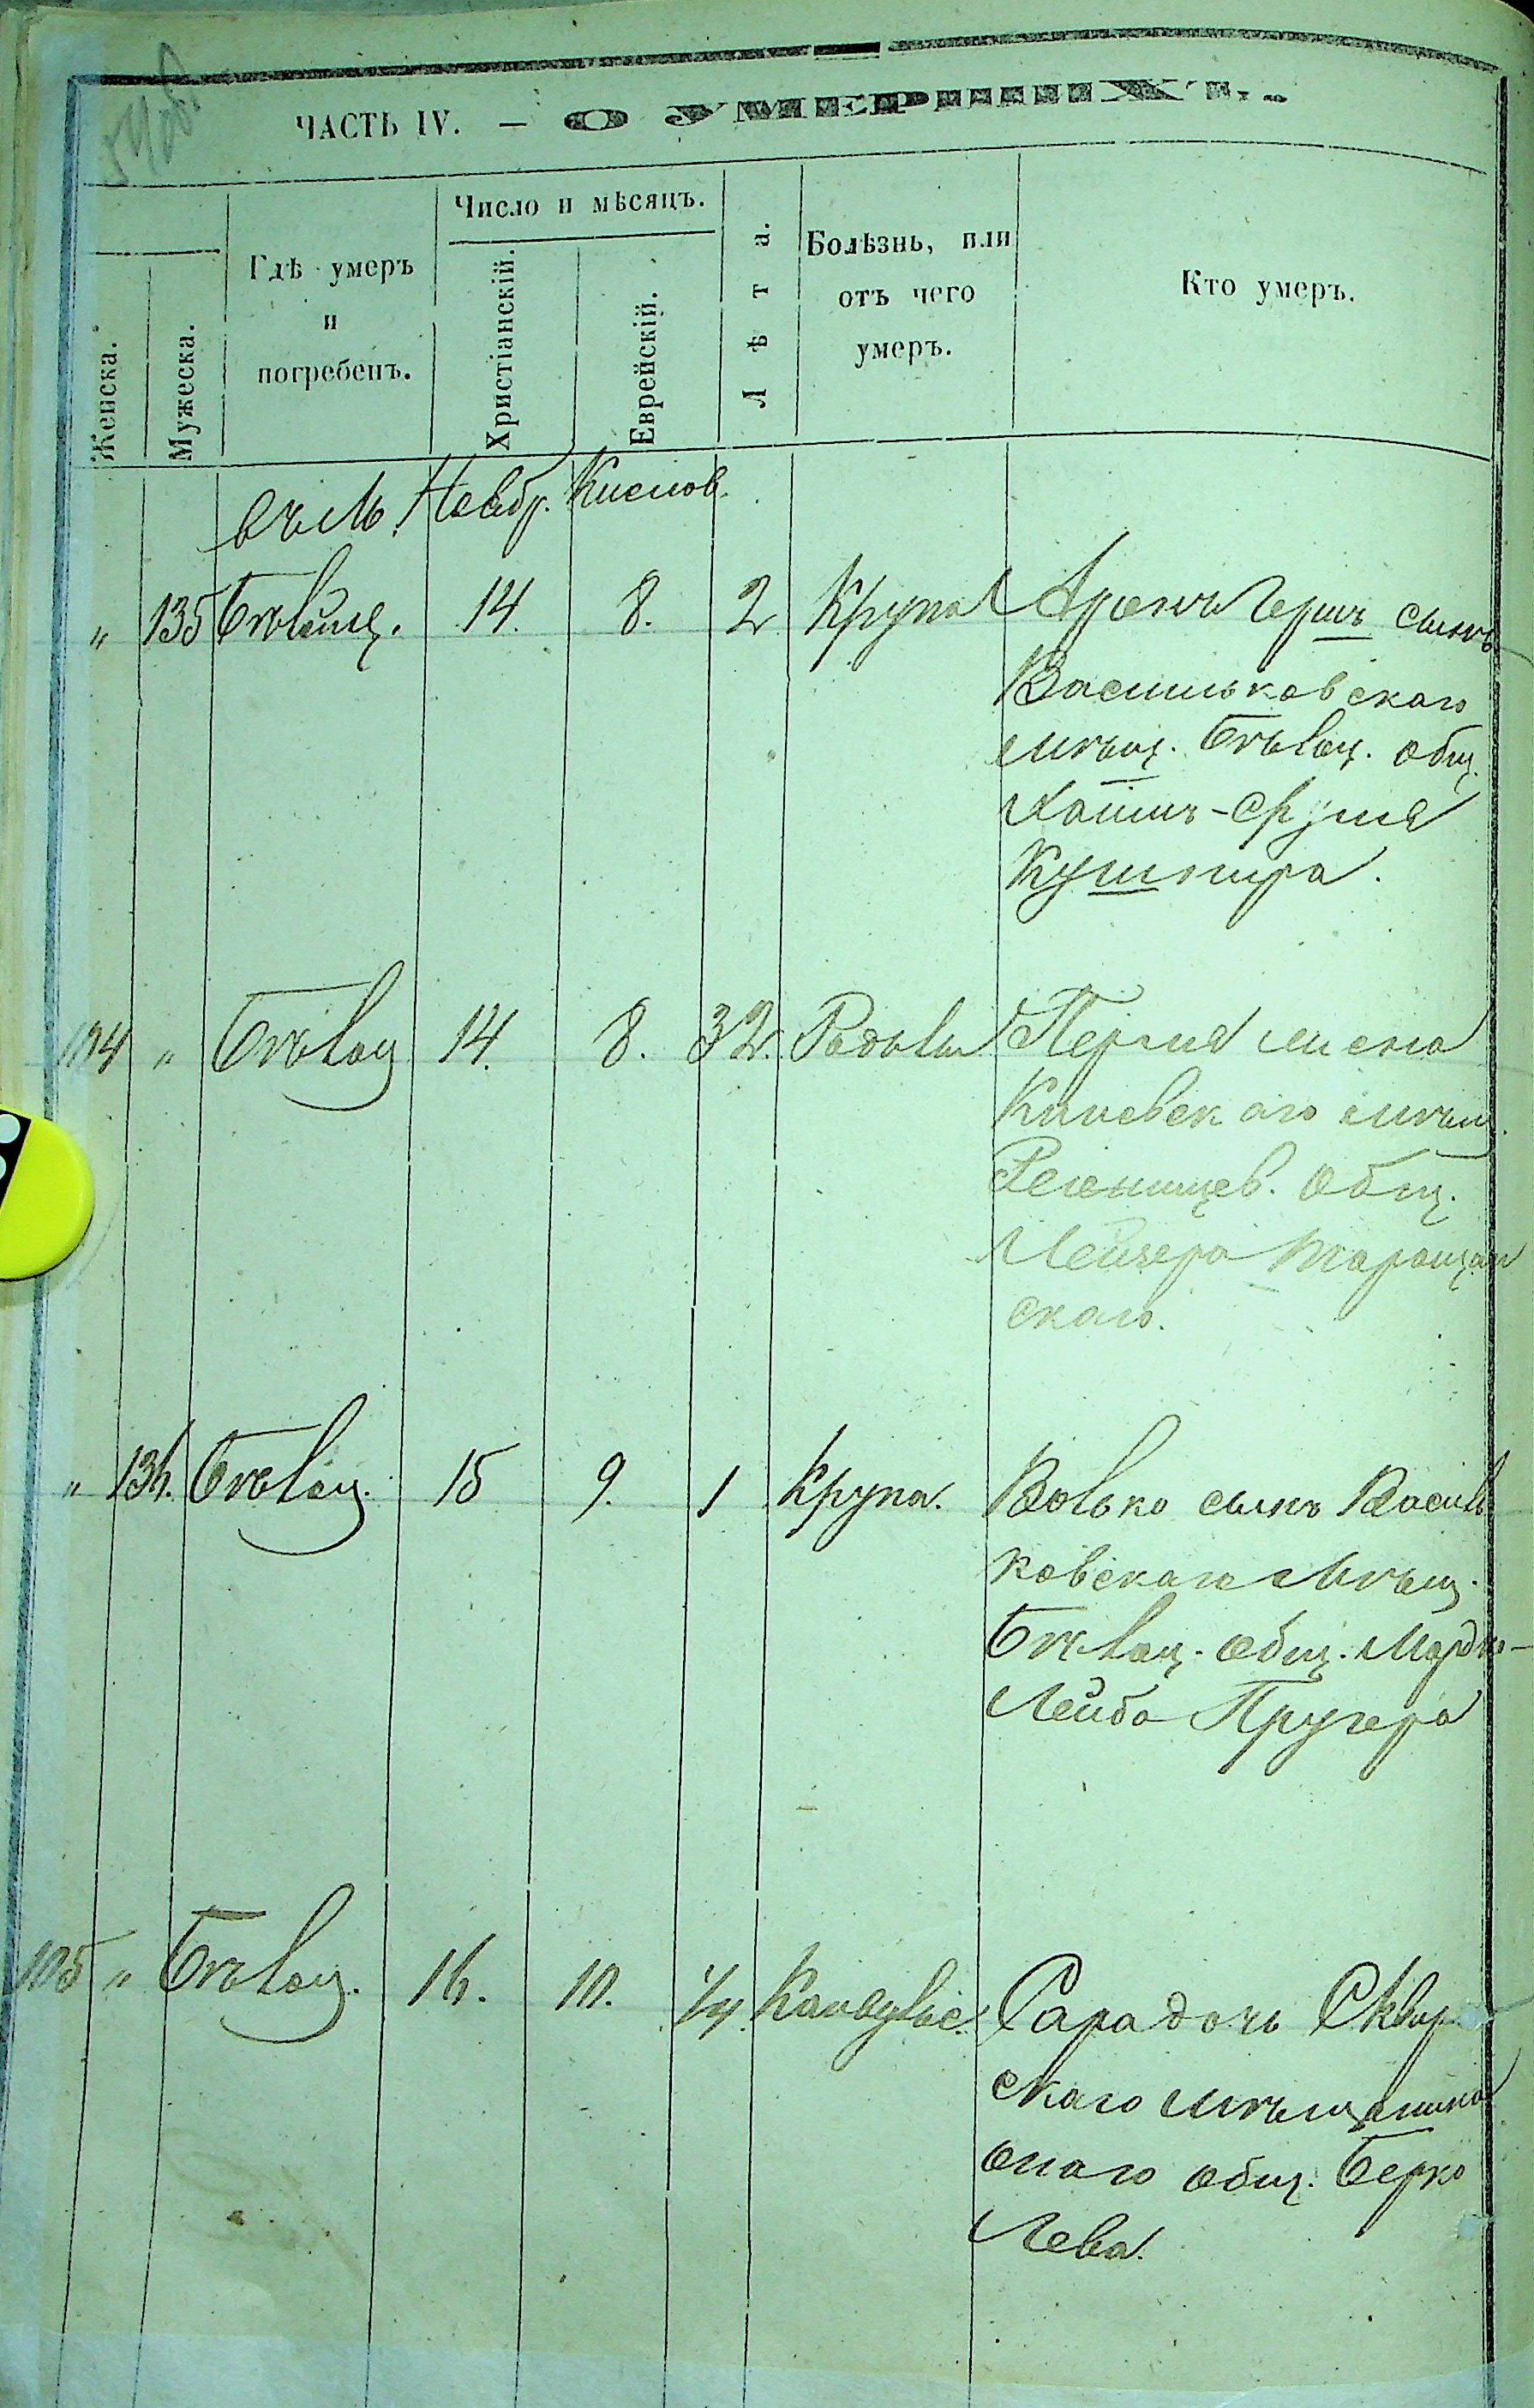 54об.
ЧАСТЬ IV. — О УМЕРШИХЪ.
Женска.
Мужеска.
Гдѣ умеръ
и
погребенъ.
Число и мѣсяцъ.
Христіанскій.
Еврейскій.
Лѣта.
Болѣзнь, или
отъ чего
умеръ.
Кто умеръ.
въ М. Ноябр. Кислов.
" 135 14. 8. 2 Крупа Аронъ Гершъ сынъ
Васильковскаго
мѣщ. Бѣлоц. общ.
Хаимъ-Сруля
Кушнира.
104 " Бѣлоц 14. 8. 32. Перля жена
Каневскаго мѣщ.
общ.
Лейзера Таращан
скаго.
" 136. Бѣлоц. 15 9. 1 Крупа. Волько сынъ Василь
ковскаго Мѣщ.
Бѣлоц. общ. Мордко-
Лейба Пругера
105 " Бѣлоц. 16. 10. 1/4. Сара дочь Сквир
скаго мѣщанина
онаго общ. Берко
Лева.